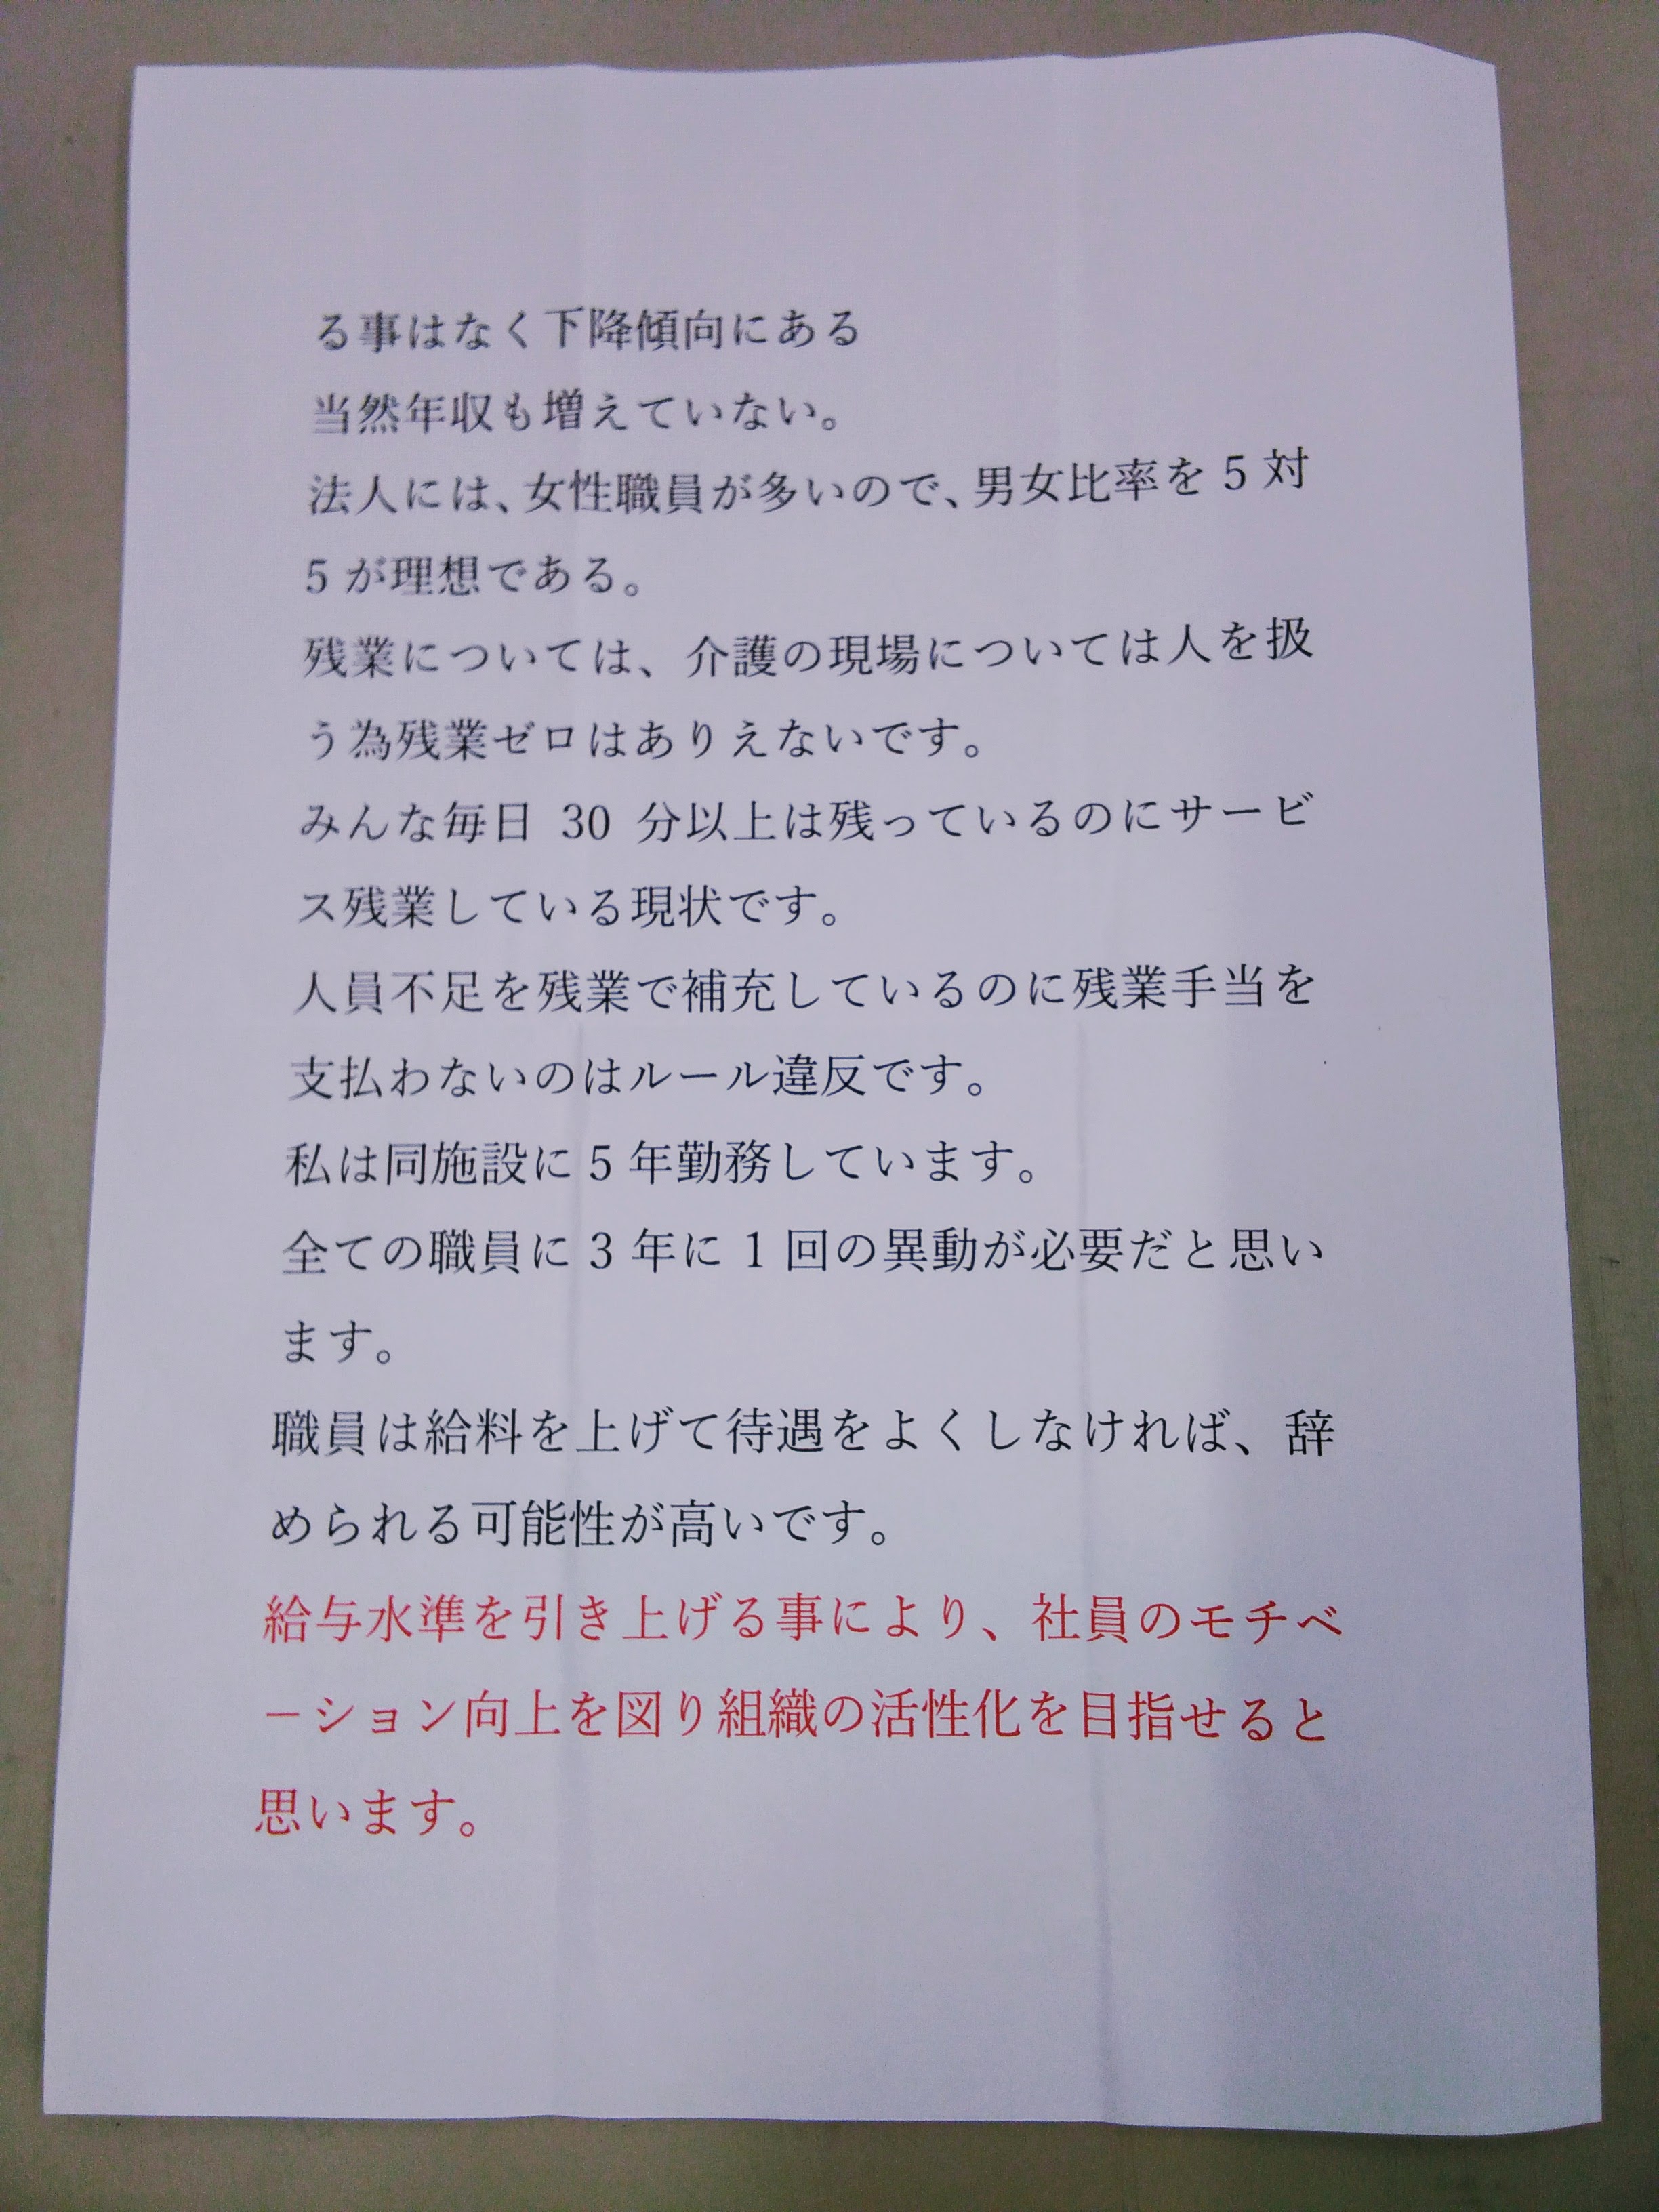 る事はなく下降傾向にある
当然年収も増えていない。
法人には、女性職員が多いので、男女比率を 5 対
5 が理想である。
残業については、介護の現場については人を扱
う為残業ゼロはありえないです。
みんな毎日 30 分以上は残っているのにサービ
ス残業している現状です。
人員不足を残業で補充しているのに残業手当を
支払わないのはルール違反です。
私は同施設に 5 年勤務しています。
全ての職員に 3 年に 1 回の異動が必要だと思い
ます。
職員は給料を上げて待遇をよくしなければ、辞
められる可能性が高いです。
給与水準を引き上げる事により、社員のモチベ
ーション向上を図り組織の活性化を目指せると
思います。